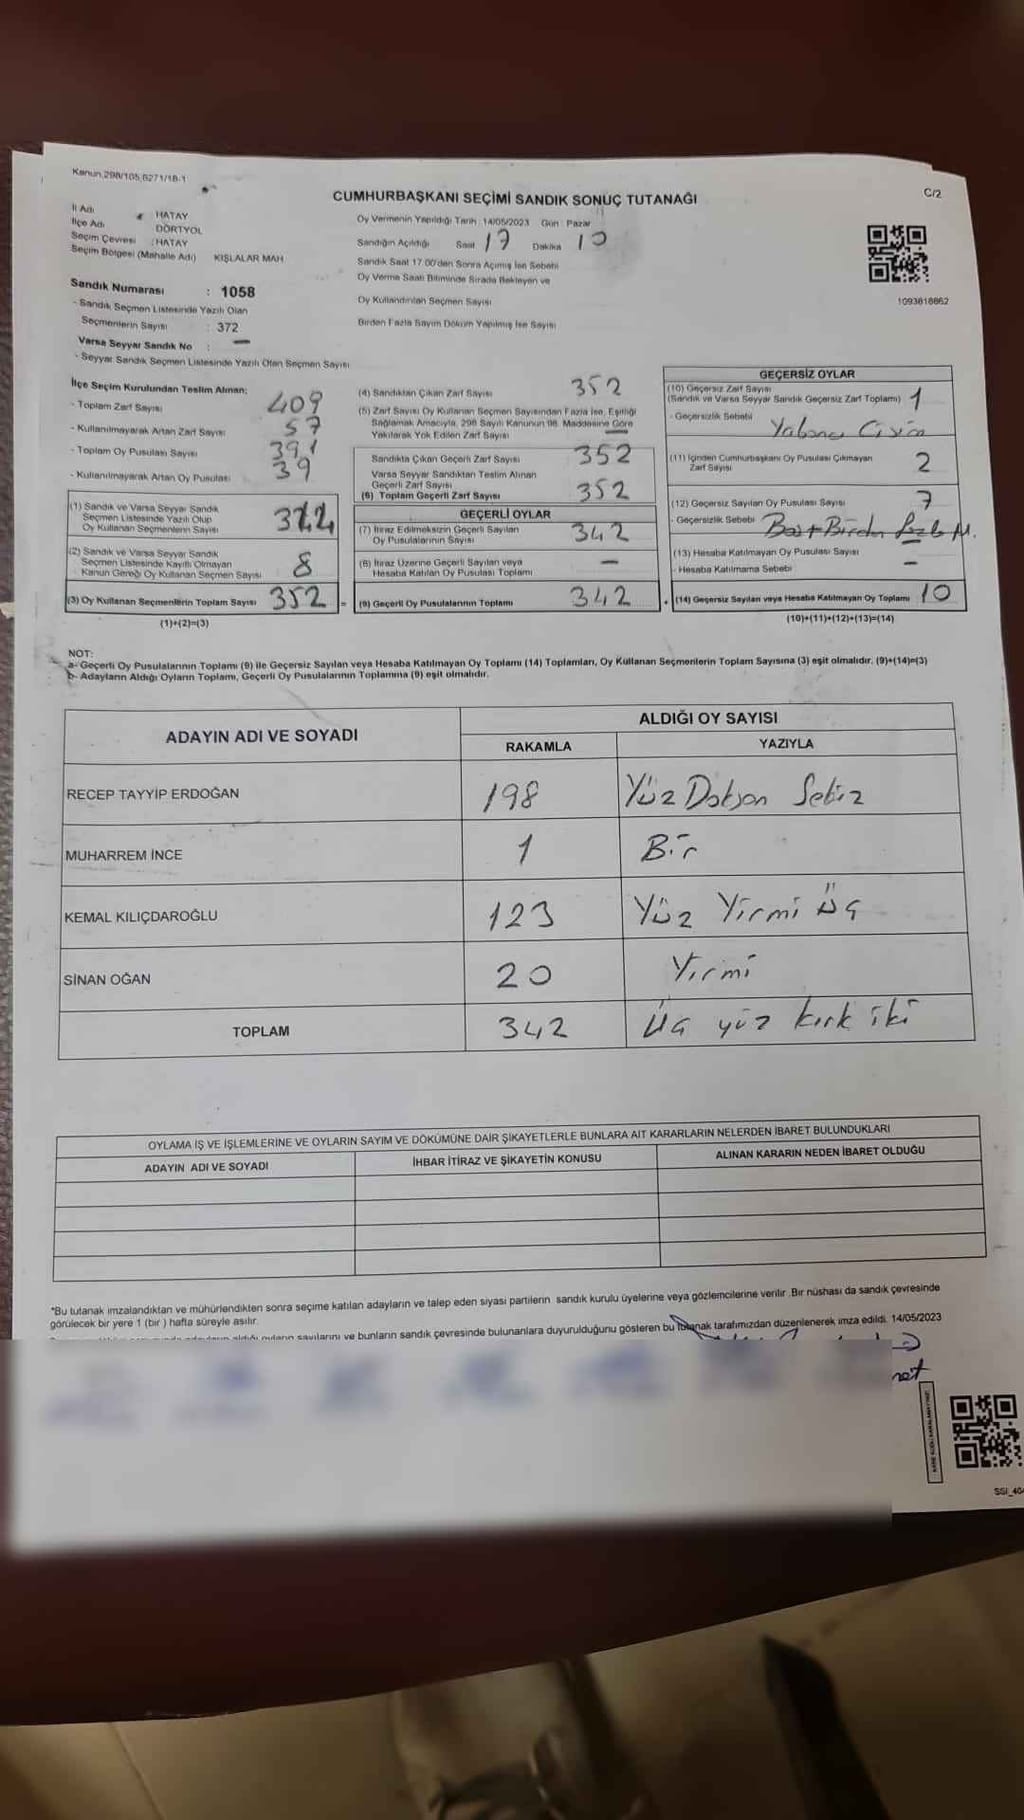 Kanun,298/105,6271/18-1
C/2
CUMHURBAŞKANI SEÇİMİ SANDIK SONUÇ TUTANAĞI
İl Adı : HATAY
İlçe Adı : DÖRTYOL
Seçim Çevresi : HATAY
Seçim Bölgesi (Mahalle Adı) KIŞLALAR MAH
Sandık Numarası : 1058
- Sandık Seçmen Listesinde Yazılı Olan
Seçmenlerin Sayısı : 372
Varsa Seyyar Sandık No : —
- Seyyar Sandık Seçmen Listesinde Yazılı Olan Seçmen Sayısı
Oy Vermenin Yapıldığı Tarih 14/05/2023 Gün Pazar
Sandığın Açıldığı Saat 17 Dakika 10
Sandık Saat 17.00'den Sonra Açılmış İse Sebebi
Oy Verme Saati Bitiminde Sırada Bekleyen ve
Oy Kullandırılan Seçmen Sayısı
Birden Fazla Sayım Döküm Yapılmış İse Sayısı
1093818862
İlçe Seçim Kurulundan Teslim Alınan;
- Toplam Zarf Sayısı 409
- Kullanılmayarak Artan Zarf Sayısı 57
- Toplam Oy Pusulası Sayısı 391
- Kullanılmayarak Artan Oy Pusulası 39
(1) Sandık ve Varsa Seyyar Sandık
Seçmen Listesinde Yazılı Olup
Oy Kullanan Seçmenlerin Sayısı
(2) Sandık ve Varsa Seyyar Sandık
Seçmen Listesinde Kayıtlı Olmayan
Kanun Gereği Oy Kullanan Seçmen Sayısı 8
(3) Oy Kullanan Seçmenlerin Toplam Sayısı 352
(1)+(2)=(3)
(4) Sandıktan Çıkan Zarf Sayısı 352
(5) Zarf Sayısı Oy Kullanan Seçmen Sayısından Fazla İse, Eşitliği
Sağlamak Amacıyla, 298 Sayılı Kanunun 98. Maddesine Göre
Yakılarak Yok Edilen Zarf Sayısı —
Sandıkta Çıkan Geçerli Zarf Sayısı 352
Varsa Seyyar Sandıktan Teslim Alınan
Geçerli Zarf Sayısı
(6) Toplam Geçerli Zarf Sayısı 352
GEÇERLİ OYLAR
(7) İtiraz Edilmeksizin Geçerli Sayılan
Oy Pusulalarının Sayısı 342
(8) İtiraz Üzerine Geçerli Sayılan veya
Hesaba Katılan Oy Pusulası Toplamı —
= (9) Geçerli Oy Pusulalarının Toplamı 342
GEÇERSİZ OYLAR
(10) Geçersiz Zarf Sayısı
(Sandık ve Varsa Seyyar Sandık Geçersiz Zarf Toplamı) 1
- Geçersizlik Sebebi Yabancı Cisim
(11) İçinden Cumhurbaşkanı Oy Pusulası Çıkmayan
Zarf Sayısı 2
(12) Geçersiz Sayılan Oy Pusulası Sayısı 7
- Geçersizlik Sebebi Boş + Birden Fazla M.
(13) Hesaba Katılmayan Oy Pusulası Sayısı
- Hesaba Katılmama Sebebi —
+ (14) Geçersiz Sayılan veya Hesaba Katılmayan Oy Toplamı 10
(10)+(11)+(12)+(13)=(14)
NOT:
a- Geçerli Oy Pusulalarının Toplamı (9) ile Geçersiz Sayılan veya Hesaba Katılmayan Oy Toplamı (14) Toplamları, Oy Kullanan Seçmenlerin Toplam Sayısına (3) eşit olmalıdır. (9)+(14)=(3)
b- Adayların Aldığı Oyların Toplamı, Geçerli Oy Pusulalarının Toplamına (9) eşit olmalıdır.
ADAYIN ADI VE SOYADI ALDIĞI OY SAYISI
RAKAMLA YAZIYLA
RECEP TAYYİP ERDOĞAN 198 Yüz Doksan Sekiz
MUHARREM İNCE 1 Bir
KEMAL KILIÇDAROĞLU 123 Yüz Yirmi Üç
SİNAN OĞAN 20 Yirmi
TOPLAM 342 Üç yüz kırk iki
OYLAMA İŞ VE İŞLEMLERİNE VE OYLARIN SAYIM VE DÖKÜMÜNE DAİR ŞİKAYETLERLE BUNLARA AİT KARARLARIN NELERDEN İBARET BULUNDUKLARI
ADAYIN ADI VE SOYADI İHBAR İTİRAZ VE ŞİKAYETİN KONUSU ALINAN KARARIN NEDEN İBARET OLDUĞU
*Bu tutanak imzalandıktan ve mühürlendikten sonra seçime katılan adayların ve talep eden siyasi partilerin sandık kurulu üyelerine veya gözlemcilerine verilir .Bir nüshası da sandık çevresinde
görülecek bir yere 1 (bir ) hafta süreyle asılır.
aldığı oyların sayılarını ve bunların sandık çevresinde bulunanlara duyurulduğunu gösteren bu tutanak tarafımızdan düzenlenerek imza edildi. 14/05/2023